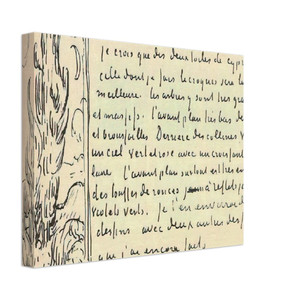 je crois que des deux toiles de cyp
celle dont je fais le croquis sera la
meilleure. les arbres y sont très gra
et massifs. l'avant plan très bas de
et broussailles. Derrière des collines v
un ciel vert et rose avec un croissant
lune. L'avant plan surtout est très em
des touffes de ronces à reflets ja
violets verts. Je t'en enverrai de
dessins avec deux autres des
que j'ai encore faits